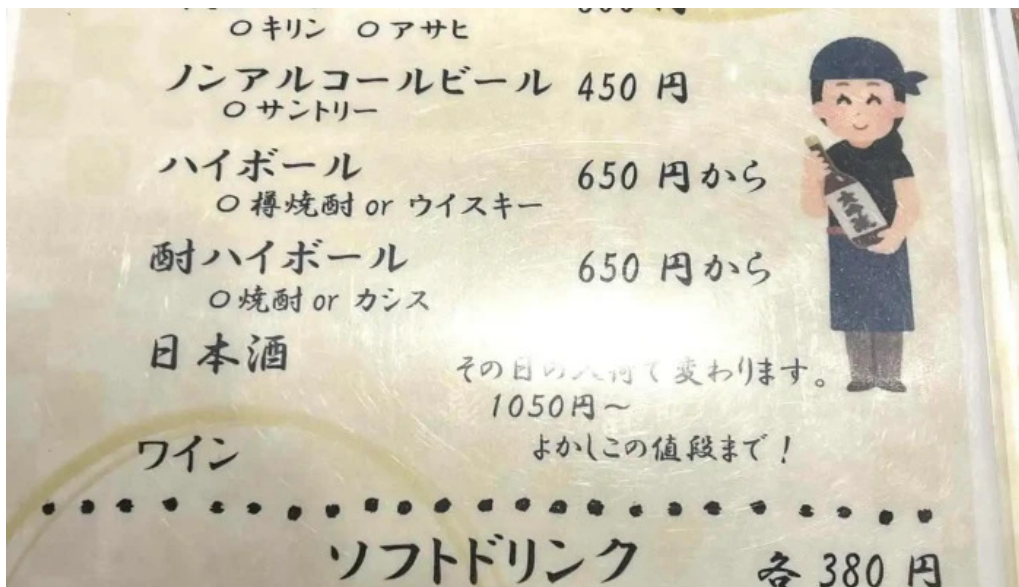 ○キリン ○アサヒ
ノンアルコールビール 450 円
○サントリー
ハイボール 650 円から
○樽焼酎 or ウイスキー
酎ハイボール 650 円から
○焼酎 or カシス
日本酒 その日の入荷で変わります。
1050円～
ワイン よかしこの値段まで！
ソフトドリンク 各 380 円